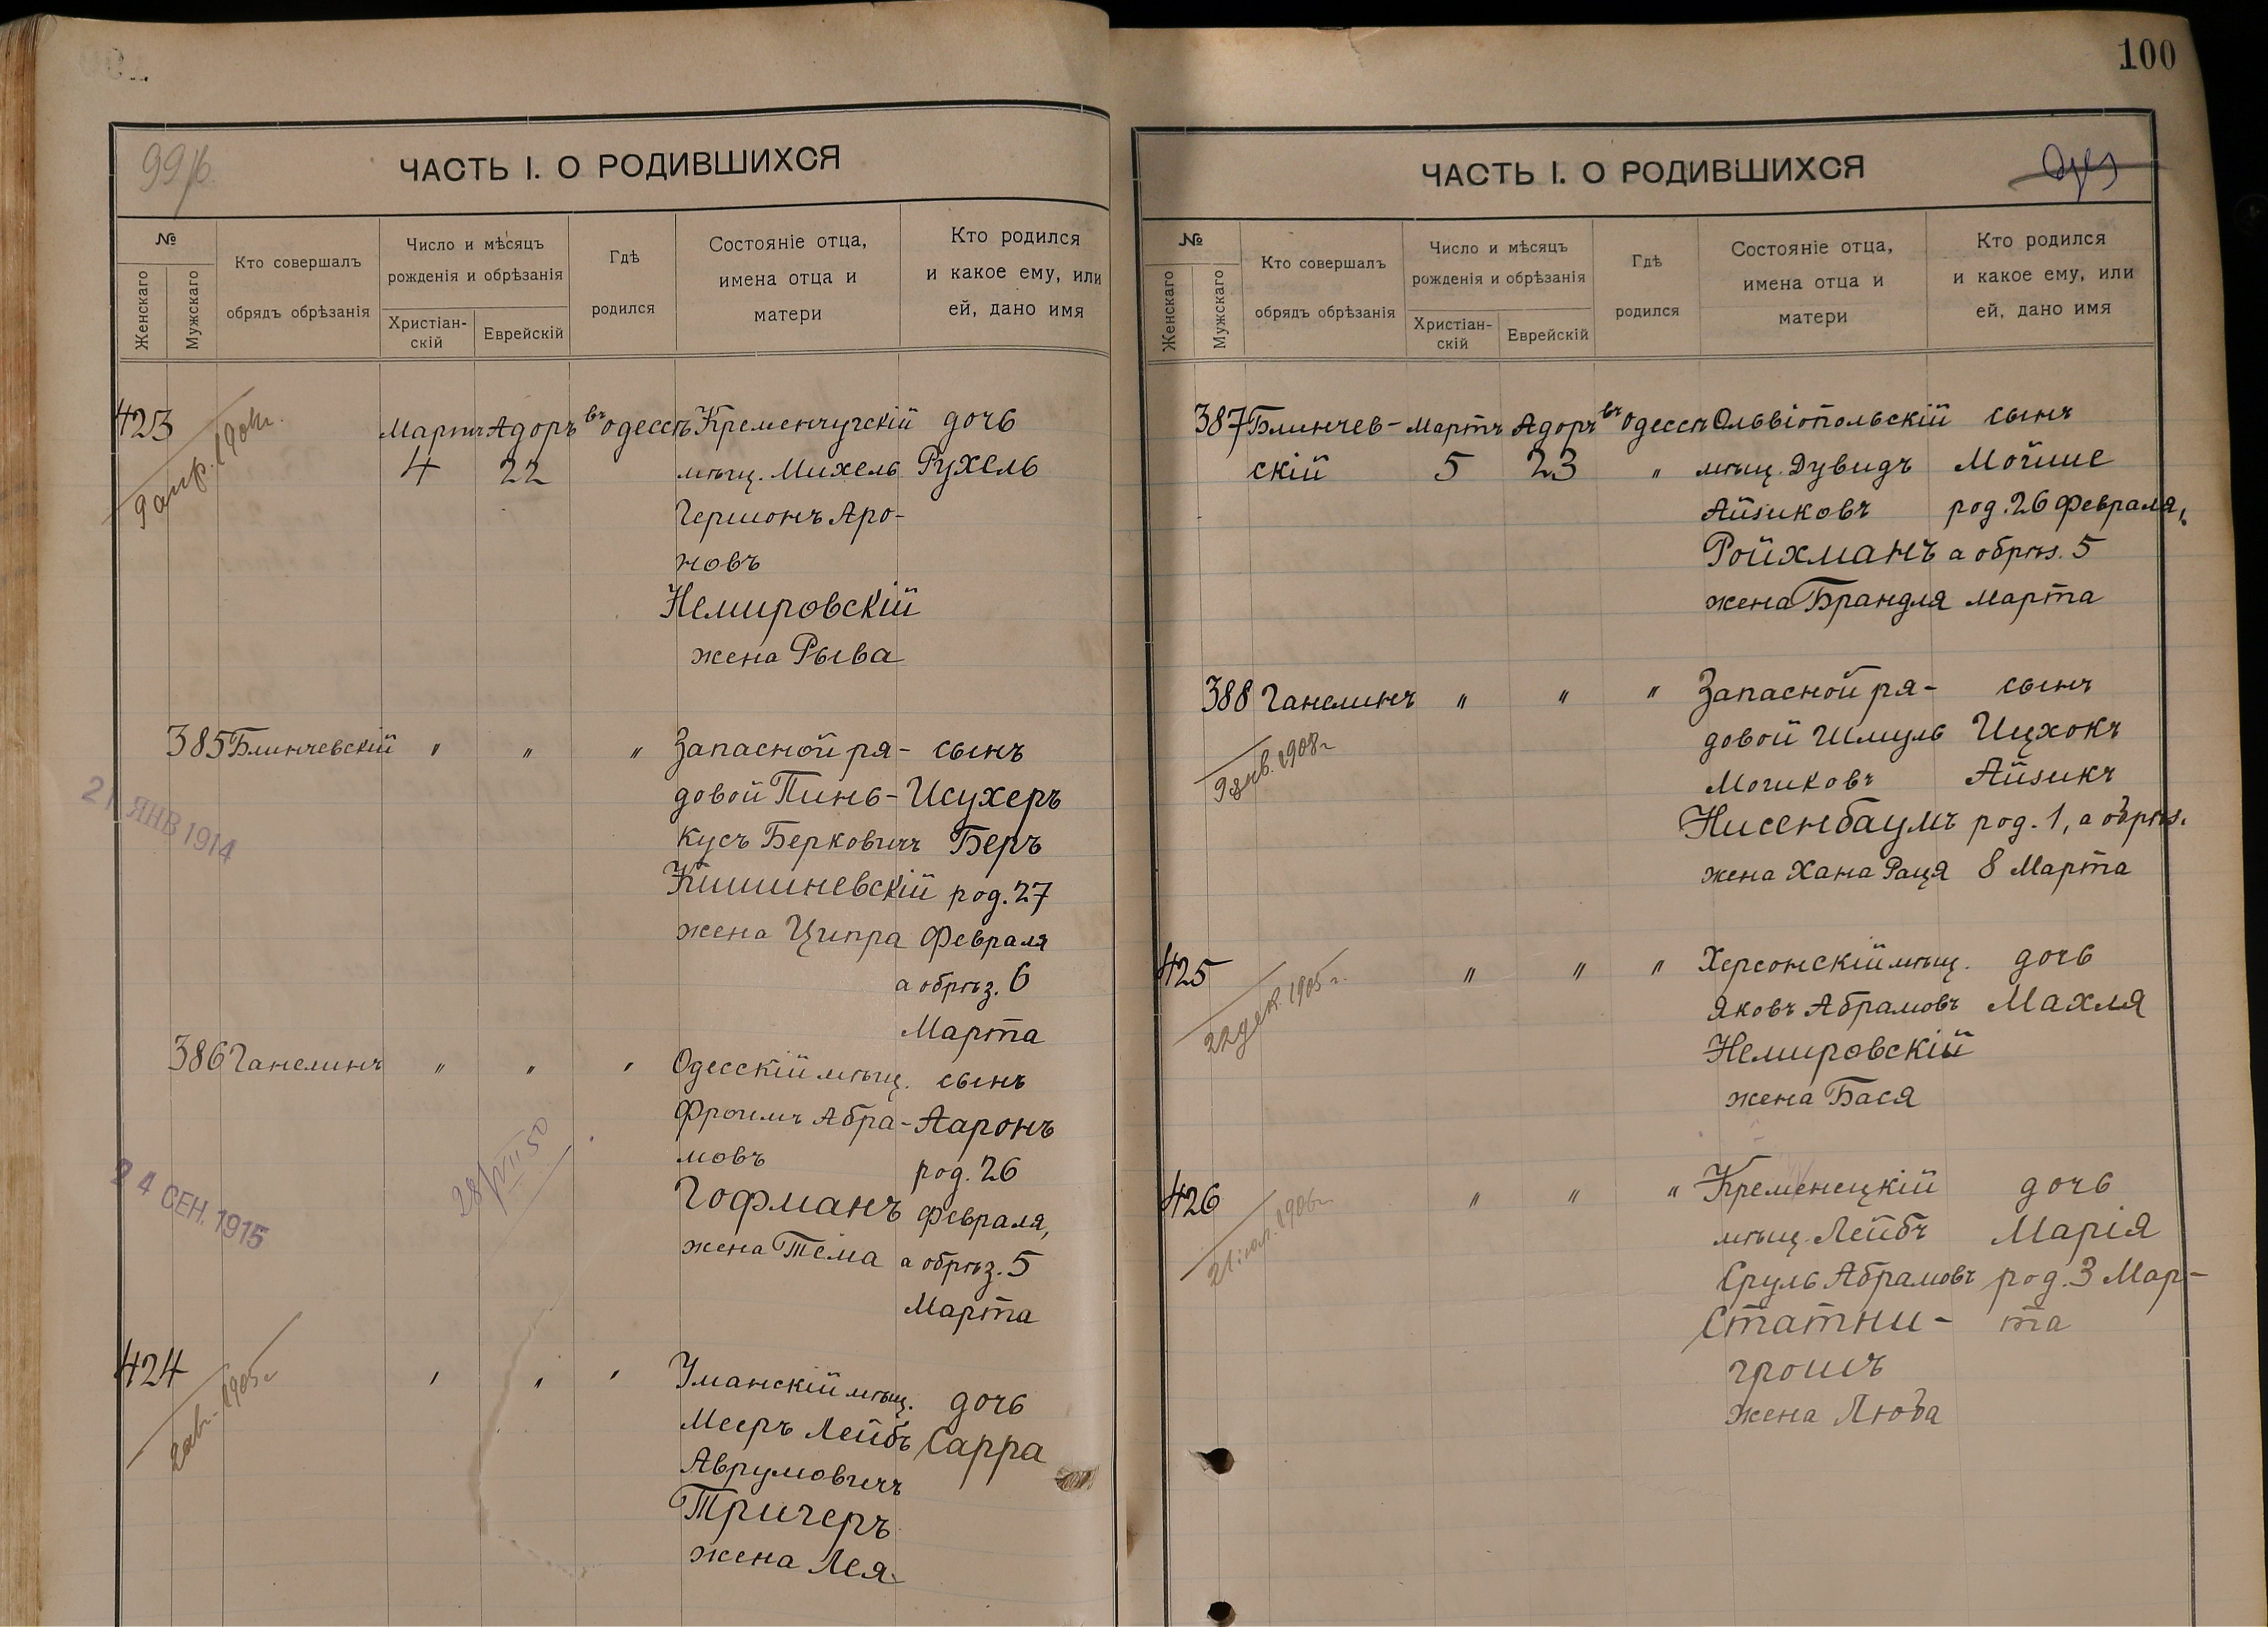 99/б
ЧАСТЬ I. О РОДИВШИХСЯ
№
Женскаго
Мужскаго
Кто совершалъ
обрядъ обрѣзанія
Число и мѣсяцъ
рожденія и обрѣзанія
Христіан-
скій
Еврейскій
Гдѣ
родился
Состояніе отца,
имена отца и
матери
Кто родился
и какое ему, или
ей, дано имя
423 Мартъ Адоръ въ Одессѣ Кременчугскій дочь
4 22 мѣщ. Михель Рухель
Гершонъ Аро-
новъ
Немировскій
жена Рыва
385 Блинчевскій " " " Запасной ря- сынъ
довой Пинь- Исухеръ
кусъ Берковичъ Беръ
Кишиневскій род. 27
жена Ципра Февраля
а обрѣз. 6
Марта
21 ЯНВ 1914
386 Ганелинъ " " " Одесскій мѣщ. сынъ
Фроимъ Абра- Ааронъ
мовъ род. 26
Гофманъ Февраля,
жена Тема а обрѣз. 5
Марта
28/VII 50
24 СЕН. 1915
424 " " " Уманскій мѣщ. дочь
Мееръ Лейбъ Сарра
Аврумовичъ
Тричеръ
жена Лея
1905 г.
100
ЧАСТЬ I. О РОДИВШИХСЯ
№
Женскаго
Мужскаго
Кто совершалъ
обрядъ обрѣзанія
Число и мѣсяцъ
рожденія и обрѣзанія
Христіан-
скій
Еврейскій
Гдѣ
родился
Состояніе отца,
имена отца и
матери
Кто родился
и какое ему, или
ей, дано имя
387 Блинчев- Мартъ Адоръ въ Одессѣ Ольвіопольскій сынъ
скій 5 23 " мѣщ. Дувидъ Мойше
Айзиковъ род. 26 Февраля,
Ройхманъ а обрѣз. 5
жена Брандля Марта
388 Ганелинъ " " " Запасной ря- сынъ
довой Шмуль Ицхокъ
Моисковъ Айзикъ
Нисенбаумъ род. 1, а обрѣз.
жена Хана Раця 8 Марта
9 янв. 1908 г.
425 " " " Херсонскій мѣщ. дочь
Яковъ Абрамовъ Махля
Немировскій
жена Бася
22 дек. 1905 г.
426 " " " Кременецкій дочь
мѣщ. Лейбъ Марія
Сруль Абрамовъ род. 3 Мар-
Статни- та
грошъ
жена Люба
1906 г.